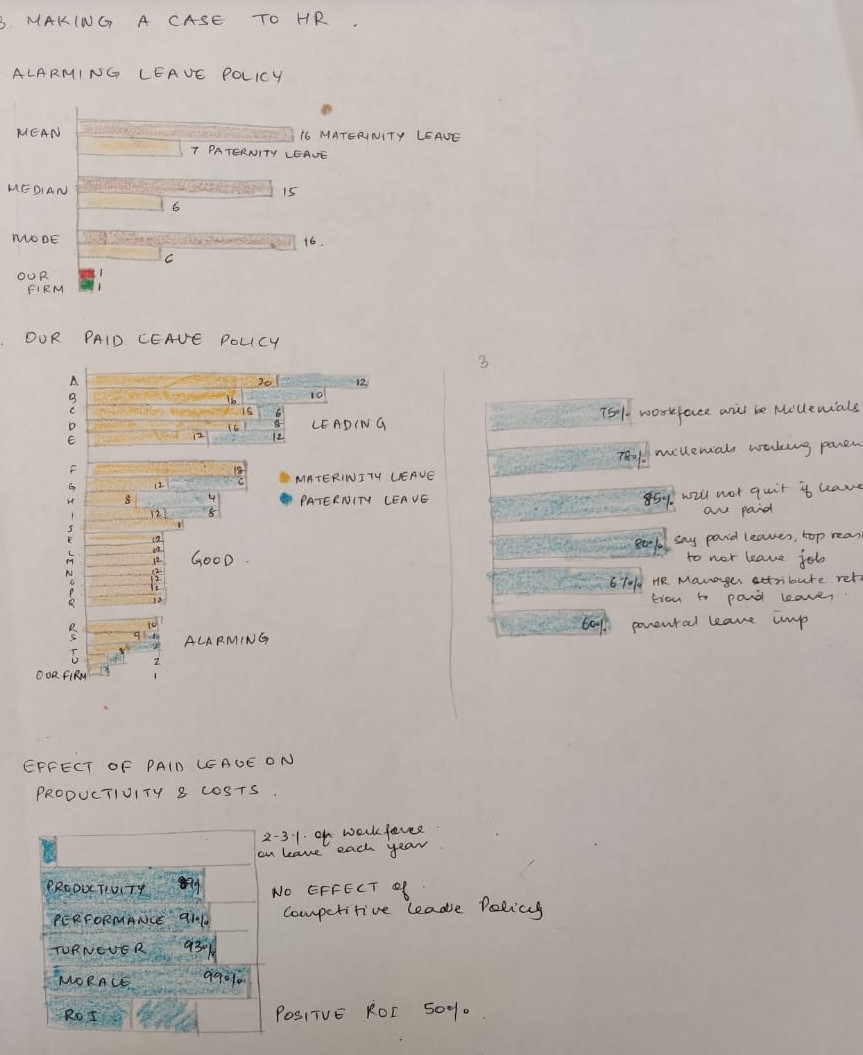 3. MAKING A CASE TO HR.
ALARMING LEAVE POLICY
MEAN
16 MATERINITY LEAVE
7 PATERNITY LEAVE
MEDIAN
15
6
MODE
16.
6
OUR FIRM
1
1
OUR PAID LEAVE POLICY
A 20 12
B 16 10
C 15 6
D 16 8
E 12 12
LEADING
F 18
G 12 6
H 8 4
I 12 8
J
K 12
L 12
M 12
N 12
O 12
P 12
Q 12
GOOD.
MATERINITY LEAVE
PATERNITY LEAVE
R 10
S 9 1
T 8 2
U 2
OUR FIRM 1
ALARMING
3
75% workforce will be Millenials
78% millenials working paren
85% will not quit if leave
are paid
80% say paid leaves, top reas
to not leave job
67% HR Manages attribute ret
tion to paid leaves.
60% parental leave imp
EFFECT OF PAID LEAVE ON
PRODUCTIVITY & COSTS.
2-3% of workforce
on leave each year
PRODUCTIVITY 89%
NO EFFECT of
Competitive leave Policy
PERFORMANCE 91%
TURNOVER 93%
MORALE 99%
ROI
POSITVE ROI 50%.